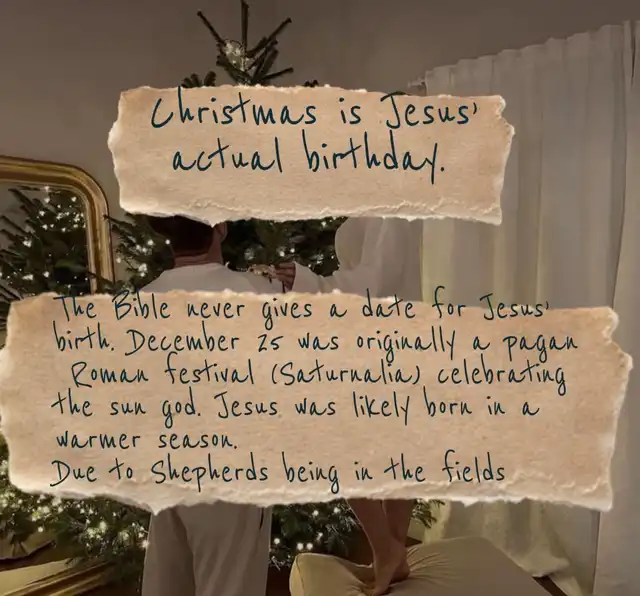 Christmas is Jesus'
actual birthday.
The Bible never gives a date for Jesus'
birth. December 25 was originally a pagan
Roman festival (Saturnalia) celebrating
the sun god. Jesus was likely born in a
warmer season.
Due to Shepherds being in the fields